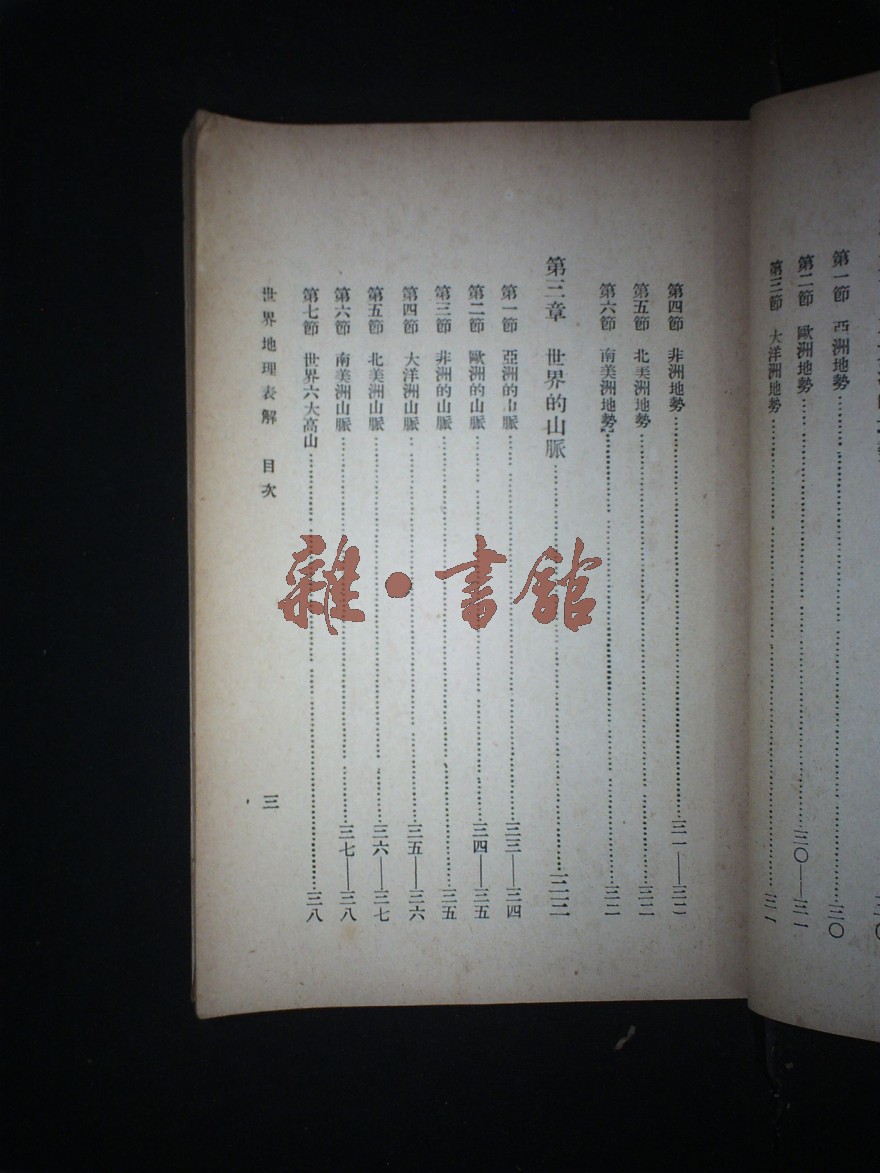 第一節 亞洲地勢……三〇
第二節 歐洲地勢……三〇—三一
第三節 大洋洲地勢……三一
第四節 非洲地勢……三一—三二
第五節 北美洲地勢……三二
第六節 南美洲地勢……三二
第三章 世界的山脈……三三
第一節 亞洲的山脈……三三—三四
第二節 歐洲的山脈……三四—三五
第三節 非洲的山脈……三五
第四節 大洋洲山脈……三五—三六
第五節 北美洲山脈……三六—三七
第六節 南美洲山脈……三七—三八
第七節 世界六大高山……三八
世界地理表解 目次 三
雜·書館